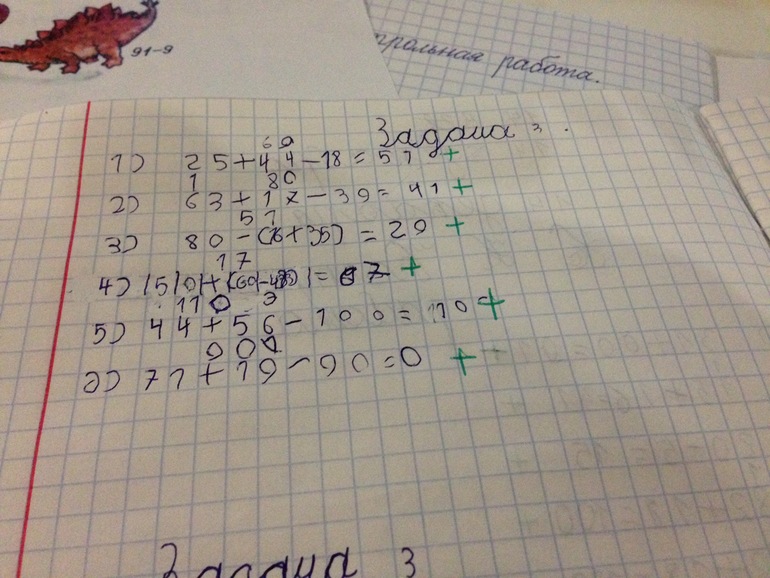 91-9
трольная работа.
Задача 3.
69
1) 25+44-18=51 +
1 80
2) 63+17-39=41 +
51
3) 80-(16+35)=29 +
17
4) 50+(60-43)=67 +
110
5) 44+56-100=110 +
90
6) 71+19-90=0 +
Задача 3